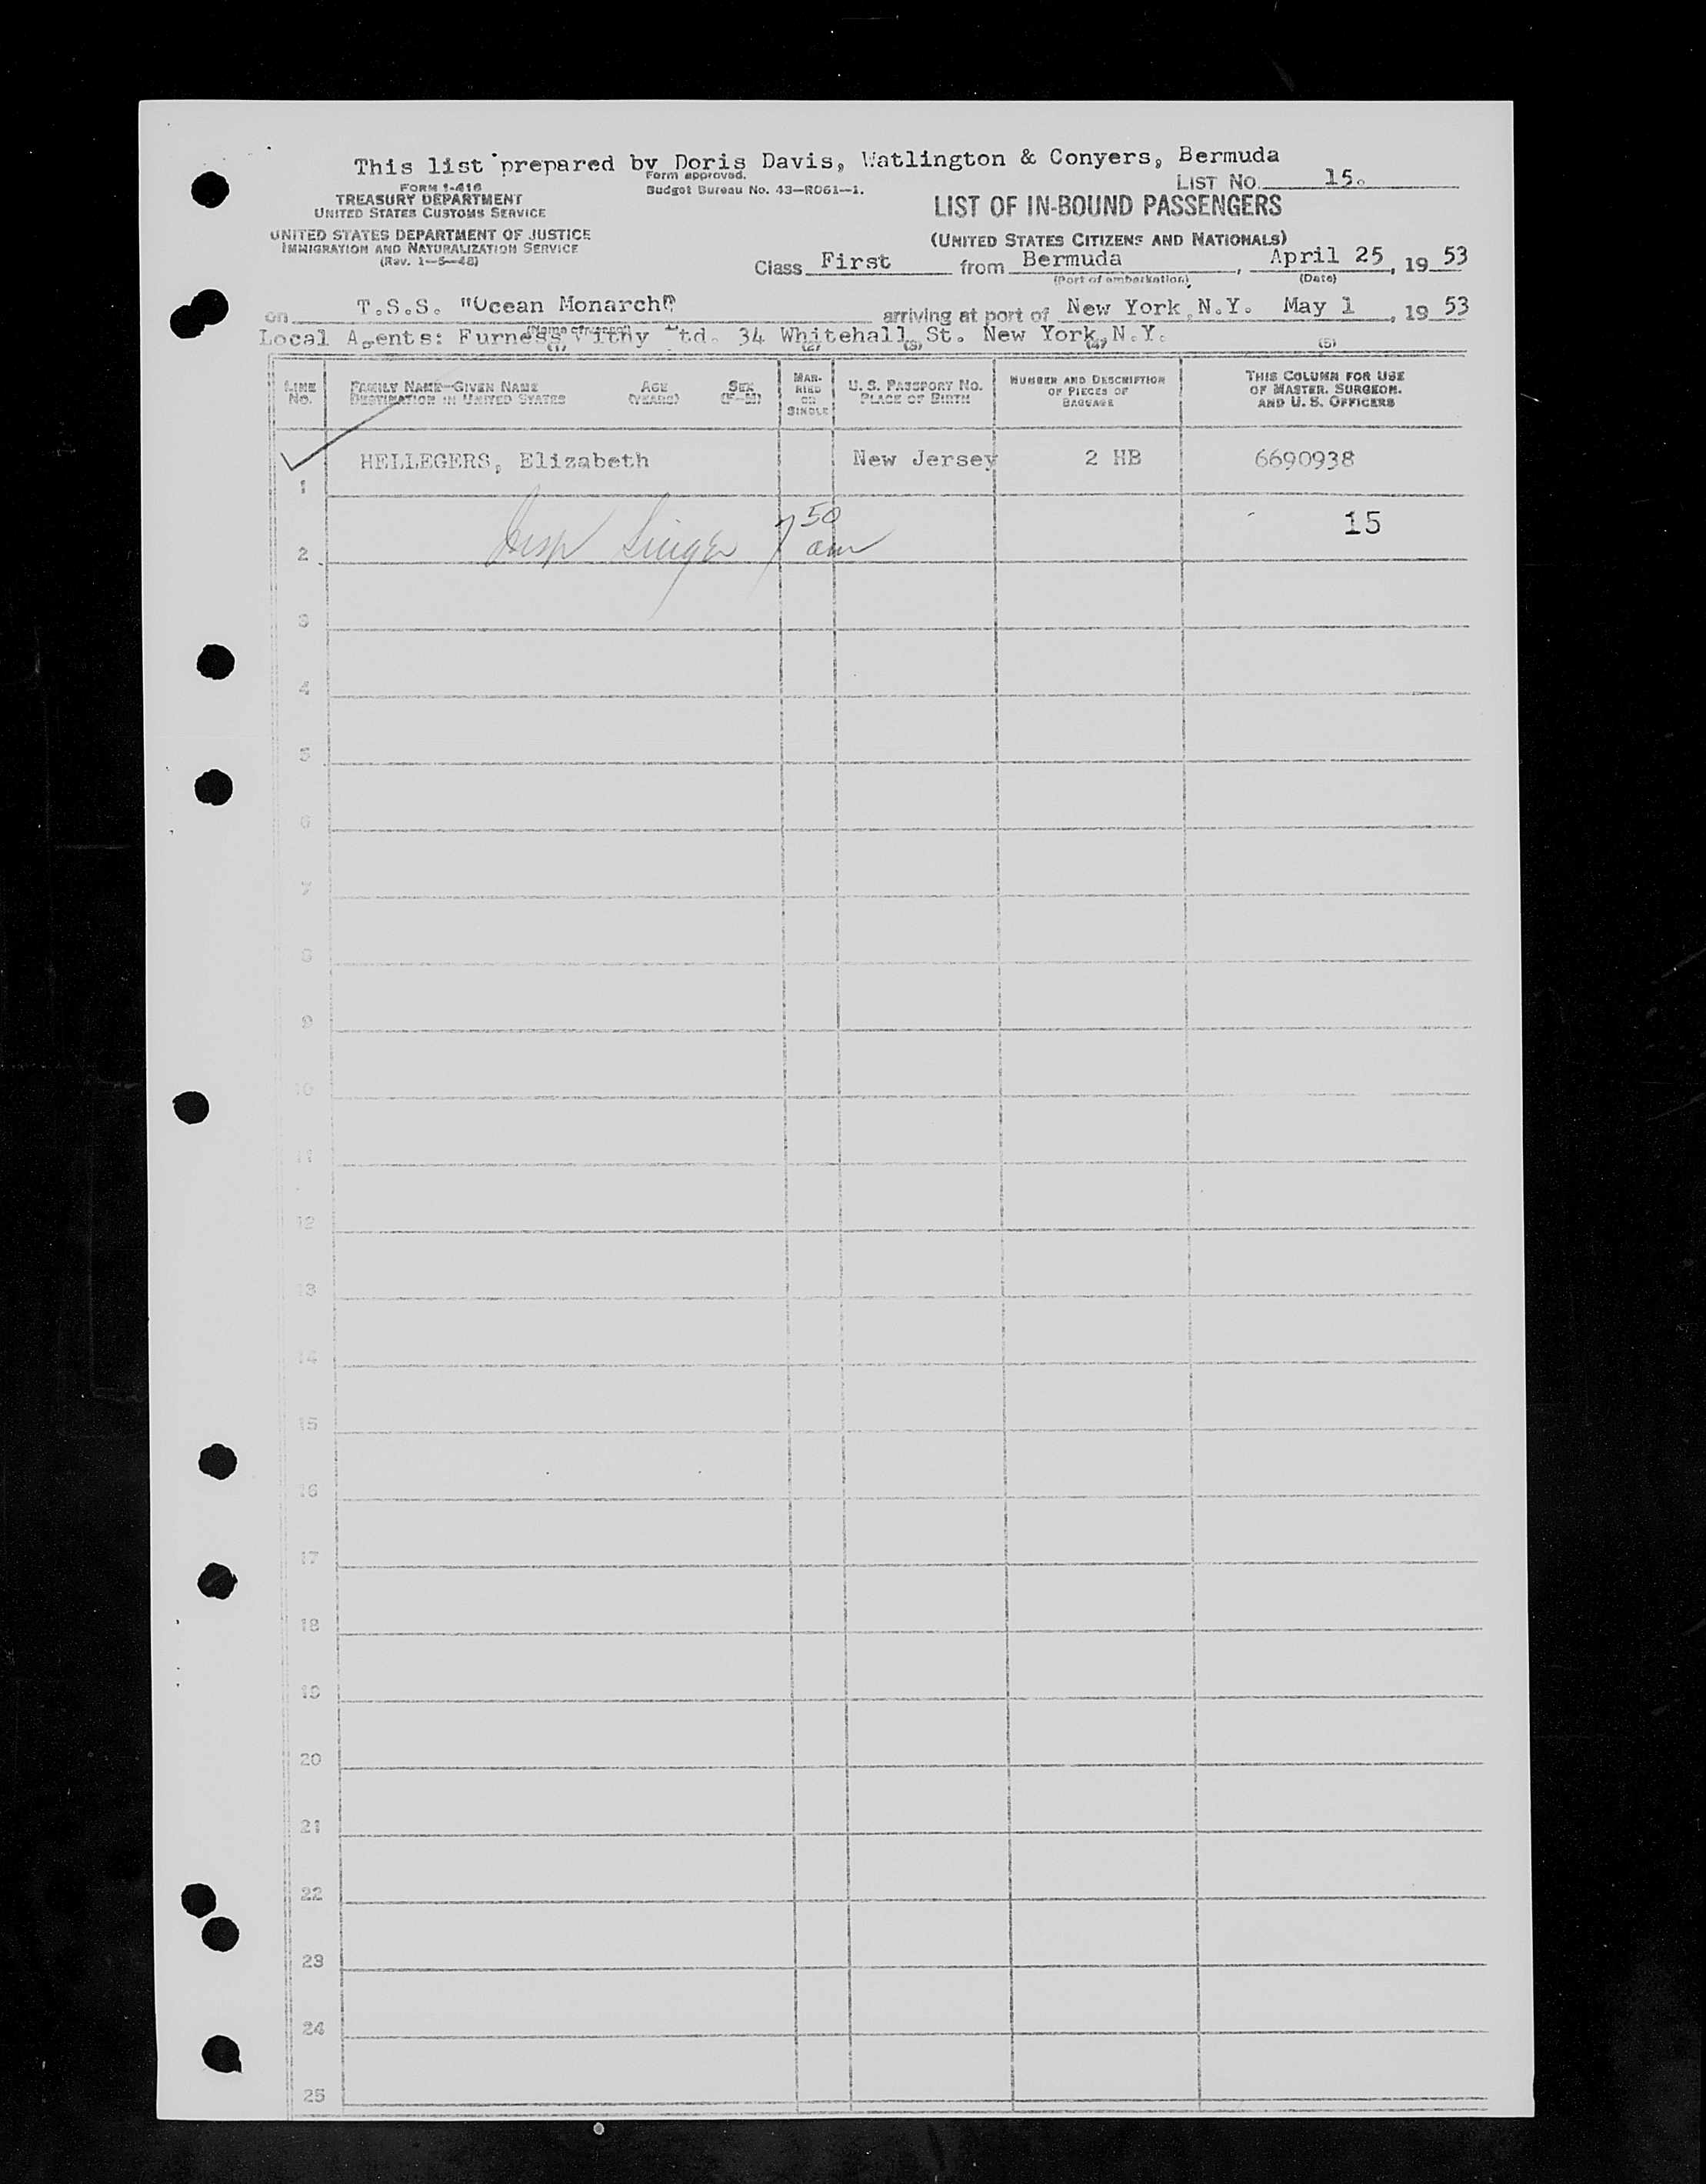 This list prepared by Doris Davis, Watlington & Conyers, Bermuda
Form approved.
Budget Bureau No. 43—R061—1.
LIST NO. 15.
FORM I-416
TREASURY DEPARTMENT
UNITED STATES CUSTOMS SERVICE
UNITED STATES DEPARTMENT OF JUSTICE
IMMIGRATION AND NATURALIZATION SERVICE
(Rev. 1—5—48)
LIST OF IN-BOUND PASSENGERS
(UNITED STATES CITIZENS AND NATIONALS)
Class First from Bermuda, April 25, 19 53
(Port of embarkation) (Date)
on T.S.S. "Ocean Monarch" arriving at port of New York, N.Y. May 1, 19 53
(Name of vessel)
Local Agents: Furness Withy Ltd. 34 Whitehall St. New York, N.Y.
(1) (2) (3) (4) (5)
LINE NO.
FAMILY NAME—GIVEN NAME AGE SEX
DESTINATION IN UNITED STATES (YEARS) (F—M)
MARRIED OR SINGLE
U. S. PASSPORT NO.
PLACE OF BIRTH
NUMBER AND DESCRIPTION
OF PIECES OF
BAGGAGE
THIS COLUMN FOR USE
OF MASTER, SURGEON,
AND U. S. OFFICERS
1 HELLEGERS, Elizabeth New Jersey 2 HB 6690938
2 Insp Singer 7 50 am 15
3
4
5
6
7
8
9
10
11
12
13
14
15
16
17
18
19
20
21
22
23
24
25